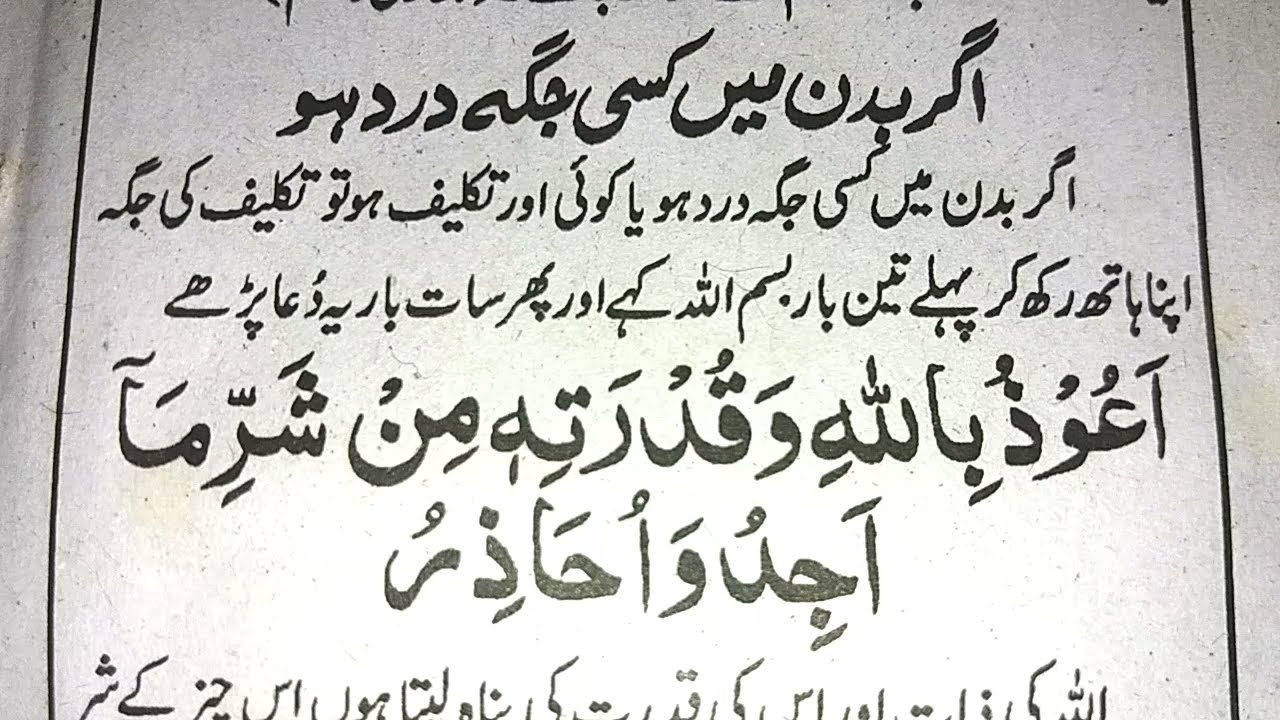 اگر بدن میں کسی جگہ درد ہو
اگر بدن میں کسی جگہ درد ہو یا کوئی اور تکلیف ہو تو تکلیف کی جگہ
اپنا ہاتھ رکھ کر پہلے تین بار بسم اللہ کہے اور پھر سات بار یہ دُعا پڑھے
اَعُوْذُ بِاللّٰهِ وَقُدْرَتِهٖ مِنْ شَرِّ مَآ
اَجِدُ وَاُحَاذِرُ
اللہ کی ذات اور اس کی قدرت کی پناہ لیتا ہوں اس چیز کے شر